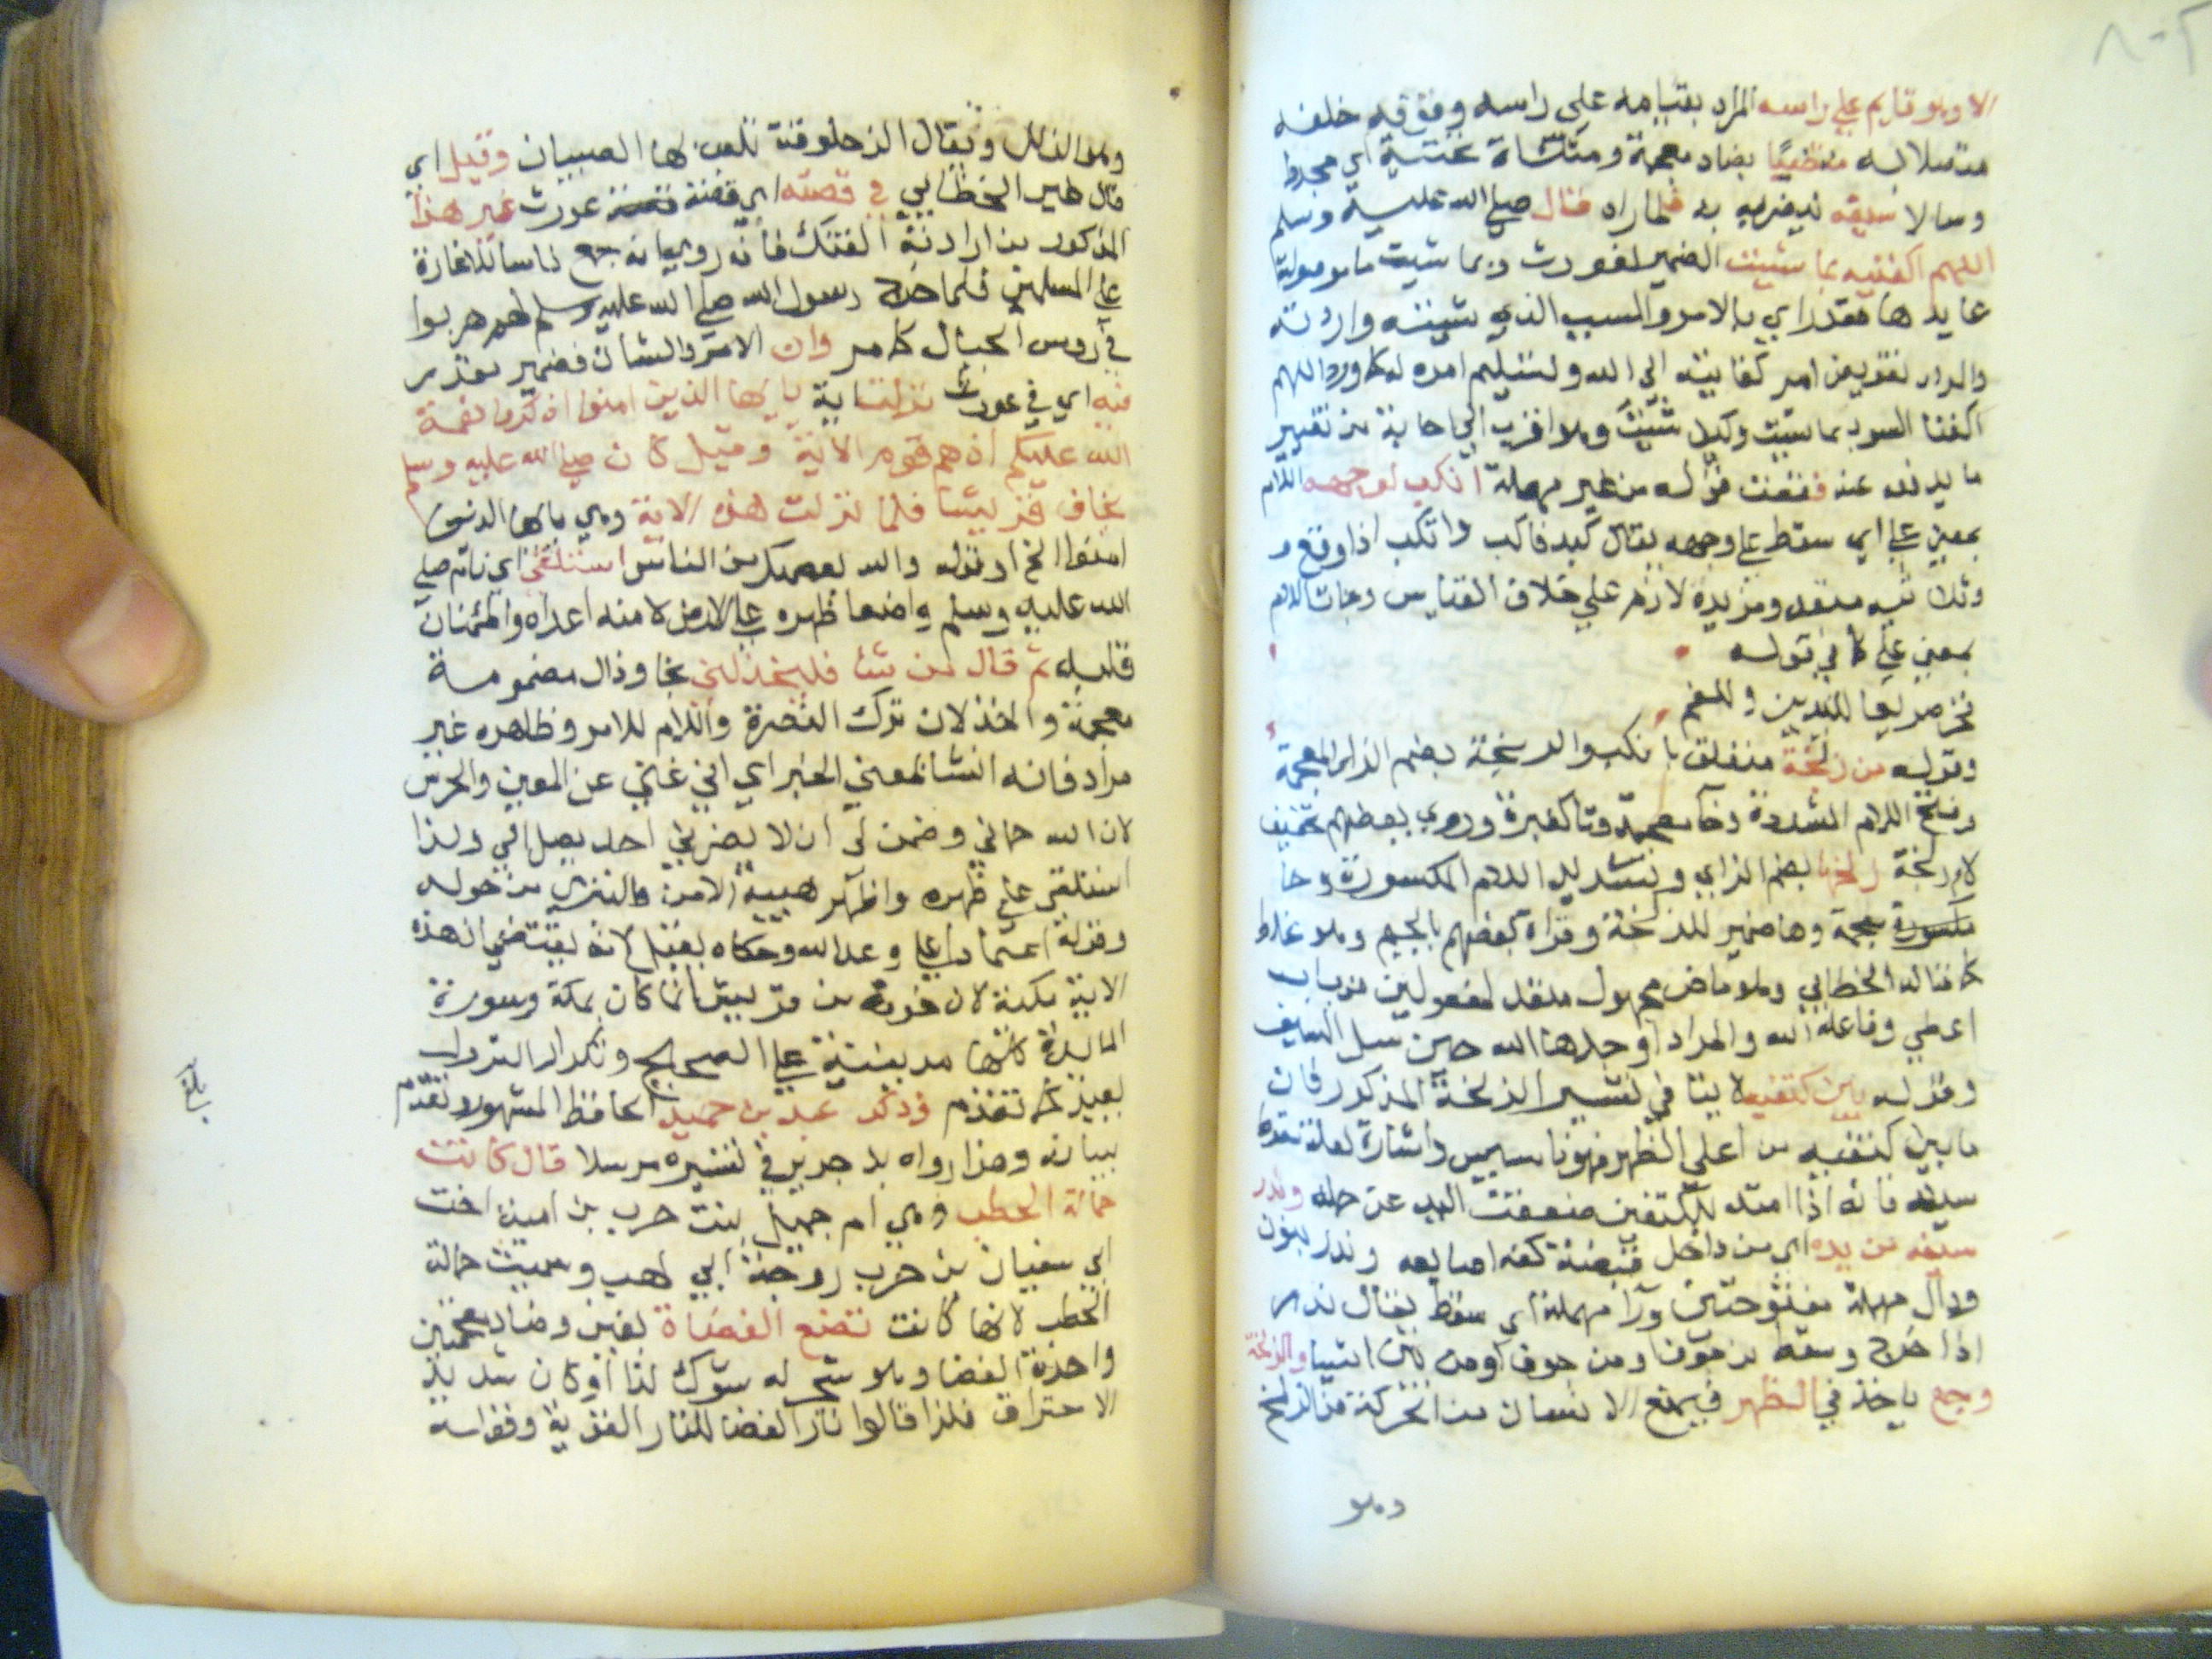 الا وهو قايم علي راسه المراد بقيامه علي راسه وقوفه خلفه
متصلا به منتضيا بضاد معجمة ومثناة تحتية اي مجردا
وسالا سيفه ليضربه به فلما راه قال صلي الله عليه وسلم
اللهم اكفنيه بما شيت الضمير لغورث وبما شيت ما موصولة
عايدها مقدر اي بالامر والسبب الذي شيته واردته
والمراد تفويض امر كفايته الي الله وتسليم امره له كما ورد اللهم
اكفنا السوء بما شيت وكيف شيت وهو اقرب الي الاجابة من تعيين
ما يدفعه عنه فقوله من غير مهملة انكب لوجهه اللام
بمعني علي اي سقط علي وجهه يقال كبه فاكب وانكب اذا وقع و
وثلاثيه متعد ومزيده لازم علي خلاف القياس وجات اللام
بمعني علي كما في قوله
فخر صريعا لليدين وللفم
وقوله من زلخة متعلق بانكب والزلخة بضم الزاي المعجمة
وفتح اللام المشددة وخا معجمة وتا كغبرة وروي بعضهم تخفيف
لام زلخة زلخها بضم الزاي وتشديد اللام المكسورة وخا
معجمة وها ضمير للزلخة وقراه بعضهم بالجيم وهو غلط
كما قاله الخطابي وهو ماض مجهول متعد لمفعولين من باب
اعطي وفاعله الله والمراد اوجدها الله حين سل السيف
وقوله بين كتفيه لا ينافي تفسير الزلخة المذكور فان
ما بين كتفيه من اعلي الظهر
سيفه فانه اذا امتد للكتفين ضعفت اليد عن حمله وندر
سيفه من يده اي من داخل قبضة كفه اصابعه وندر بنون
ودال مهملة مفتوحتين ورا مهملة اي سقط يقال ندر
اذا خرج وسقط من فوق او من جوف او من بين اشيا والزلخة
وجع ياخذ في الظهر فيمنع الانسان من الحركة من الزلخ
وهو
وهو الزلل ويقال الزحلوقة تلعب لها الصبيان وقيل اي
قال الخطابي في قصته اي قصة غورث غير هذا
المذكور من ارادته الفتك فانه روي انه جمع ناسا للاغارة
علي المسلمين فلما خرج رسول الله صلي الله عليه وسلم لهم هربوا
في روس الجبال كما مر وان الامر والشان فضمير مقدر
فيه اي في غورث نزلت اية يا يها الذين امنوا اذكروا نعمة
الله عليكم اذ هم قوم الاية وقيل كان صلي الله عليه وسلم
يخاف قريشا فلما نزلت هذه الاية وهي يا يها الذين
امنوا الخ او قوله والله يعصمك من الناس استلقي اي نام صلي
الله عليه وسلم واضعا ظهره علي الارض لامنه اعداه واطمئنان
قلبه ثم قال من شا فليخذلني بخا وذال مضمومة
معجمة والخذلان ترك النصرة واللام للامر وظاهره غير
مراد فانه انشا بمعني الخبر اي اني غني عن المعين والحرس
لان الله حماني وضمن لي ان لا يضرني احد يصل الي ولذا
استلقي علي ظهره واظهر هيبة الامن والتبري من حوله
وقوته اعتمادا علي وعد الله وحكاه بقيل لانه يقتضي ان هذه
الاية مكية لان خوفه من قريش انما كان بمكة وسورة
المايدة كلها مدينية علي الصحيح وتكرار النزول
بعيد كما تقدم وذكر عبد بن حميد الحافظ المشهور وتقدم
بيانه وهذا رواه ابن جرير في تفسيره مرسلا قال كانت
حمالة الحطب وهي ام جميل بنت حرب بن امية اخت
ابي سفيان بن حرب زوجة ابي لهب وسميت حمالة
الحطب لانها كانت تضع الغضاة بغين وضاد معجمتين
واحدة الغضا وهو شجر له شوك لذا او كان شديد
الاحتراق فلذا قالوا نار الغضا للنار القوية وقوله
بلغ